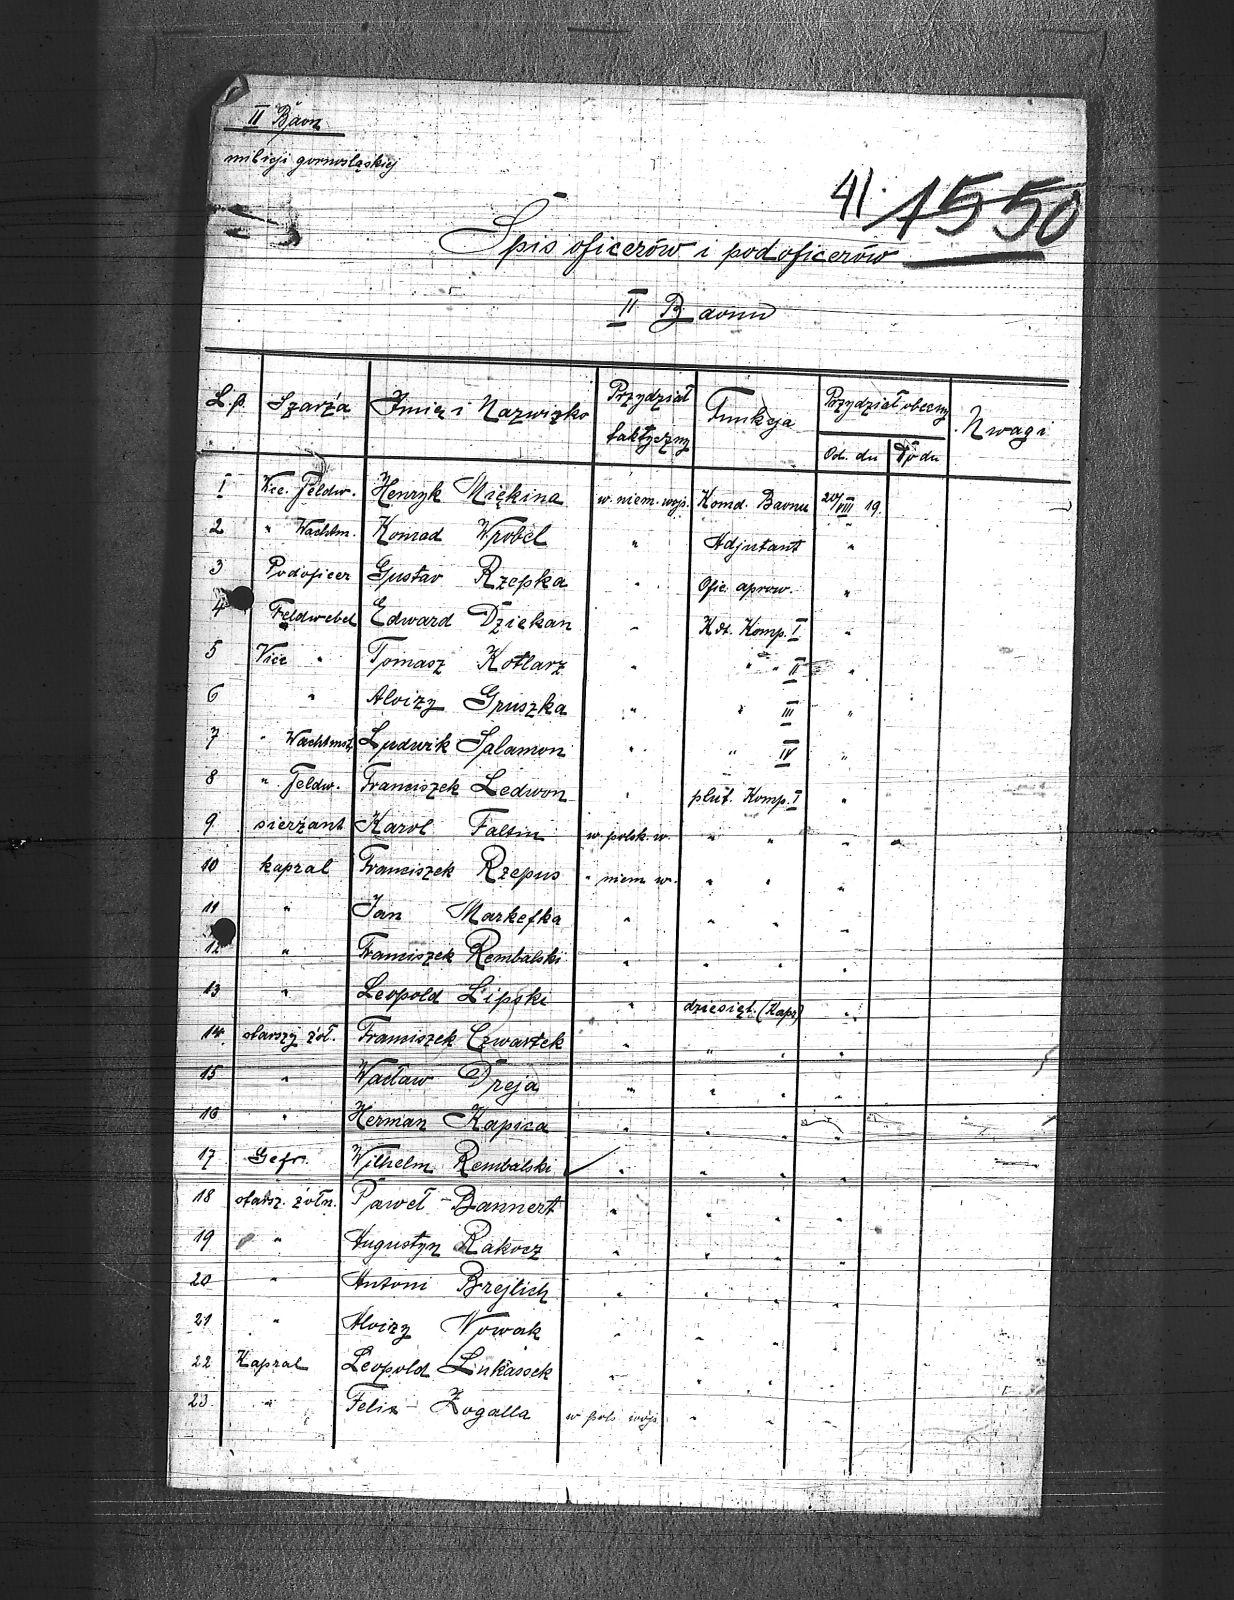 II Baon
milicji gornośląskiej
41. 1550
Spis oficerów i podoficerów
II Baonu
L.p. Szarża Imię i Nazwisko Przydział faktyczny Funkcja Przydział obecny Uwagi
Od. dn Do dn
1 Vic. Feldw. Henryk Miękina w. niem. wojs. Komd. Baonu 20/VIII 19.
2 " Wachtm. Konrad Wrobel " Adjutant "
3 Podoficer Gustav Rzepka " Ofic. aprow. "
4 Feldwebel Edward Dziekan " Kdt. Komp. I "
5 Vice " Tomasz Kotlarz " " " II "
6 " Aloizy Gruszka " " III "
7 " Wachtmst. Ludwik Salamon " " IV "
8 " Feldw. Franciszek Ledwon " plut. Komp. I "
9 sierżant Karol Faltin w polsk. w. " " "
10 kapral Franciszek Rzepus " niem w. " " "
11 " Jan Markefka " " " "
12 " Franciszek Rembalski " " " "
13 " Leopold Lipski " dziesięt. (Kapr) "
14 starszy żoł. Franciszek Czwartek " " " "
15 " Wacław Dreja " " " "
16 " Herman Kapica " " " "
17 Gefr. Wilhelm Rembalski " " " "
18 starsz. żołn. Paweł Bannert " " " "
19 " Augustyn Rakocz " " " "
20 " Antoni Brejlich " " " "
21 " Aloizy Nowak " " " "
22 Kapral Leopold Lukassek " " " "
23 " Felix Zogalla w pols. wojs. " " "